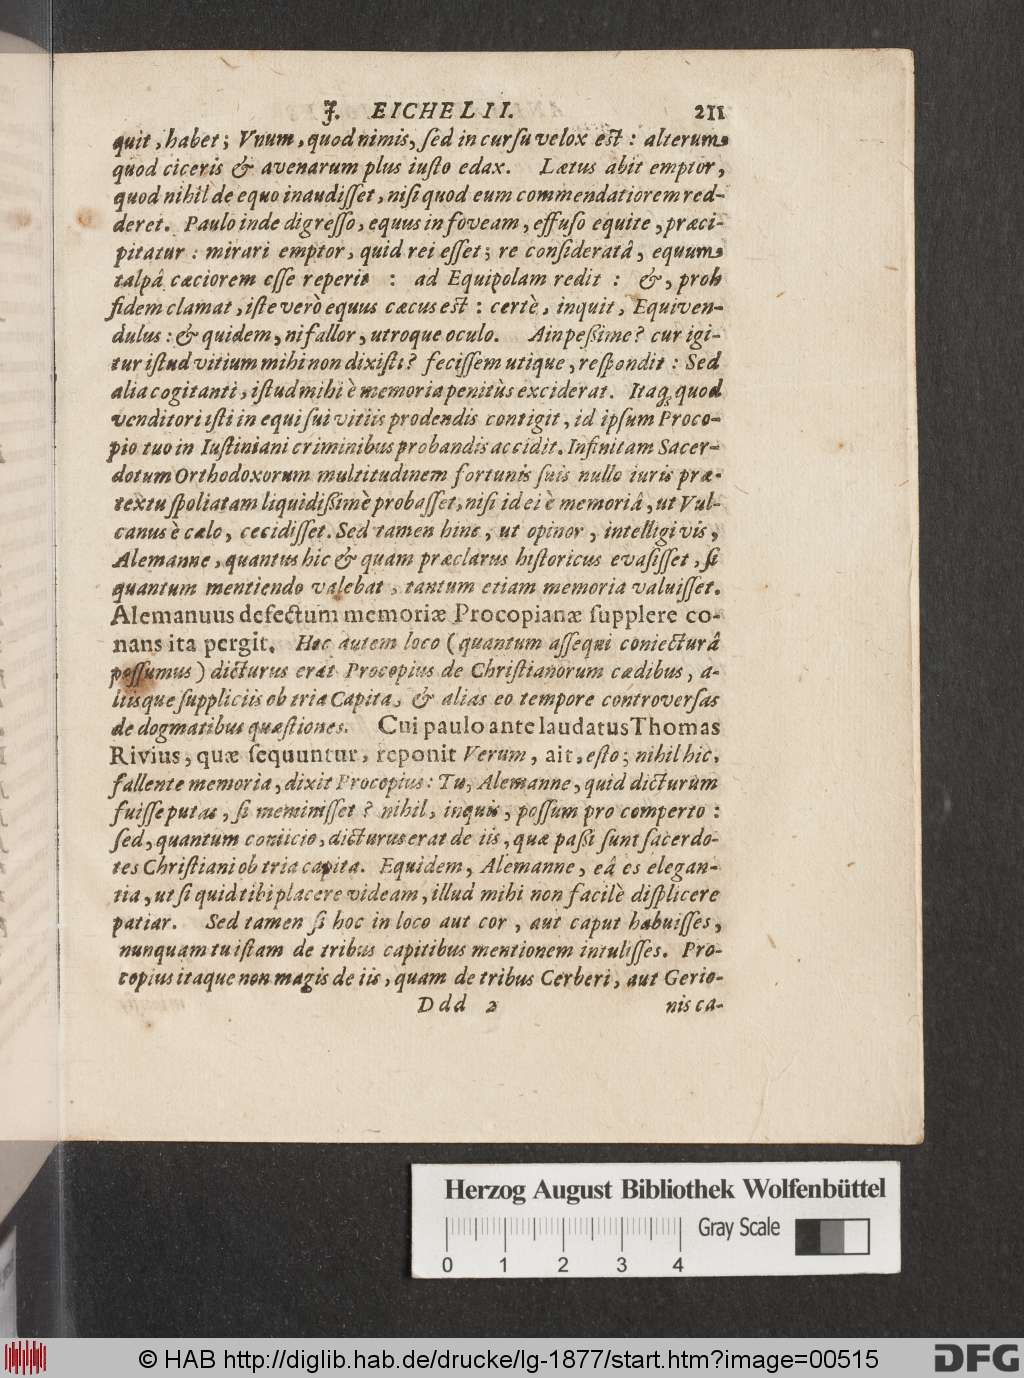 J. EICHELII. 211
quit, habet; Vnum, quod nimis, ſed in curſu velox eſt: alterum,
quod ciceris & avenarum plus iuſto edax. Lætus abit emptor,
quod nihil de equo inaudiſſet, niſi quod eum commendatiorem red-
deret. Paulo inde digreſſo, equus in foveam, effuſo equite, præci-
pitatur: mirari emptor, quid rei eſſet; re conſideratâ, equum,
talpâ cæciorem eſſe reperit : ad Equipolam redit : &, proh
fidem clamat, iſte verò equus cæcus eſt: certè, inquit, Equiven-
dulus: & quidem, ni fallor, utroque oculo. Ain peßime? cur igi-
tur iſtud vitium mihi non dixiſti? feciſſem utique, reſpondit: Sed
alia cogitanti, iſtud mihi è memoria penitùs exciderat. Itaq; quod
venditori iſti in equi ſui vitiis prodendis contigit, id ipſum Proco-
pio tuo in Iuſtiniani criminibus probandis accidit. Infinitam Sacer-
dotum Orthodoxorum multitudinem fortunis ſuis nullo iuris præ-
textu ſpoliatam liquidißimè probaſſet, niſi id ei è memoriâ, ut Vul-
canus è cælo, cecidiſſet. Sed tamen hinc, ut opinor, intelligi vis,
Alemanne, quantus hic & quam præclarus hiſtoricus evaſiſſet, ſi
quantum mentiendo valebat, tantum etiam memoria valuiſſet.
Alemanuus defectum memoriæ Procopianæ ſupplere co-
nans ita pergit. Hoc autem loco (quantum aſſequi coniecturâ
poſſumus) dicturus erat Procopius de Chriſtianorum cædibus, a-
liisque ſuppliciis ob tria Capita, & alias eo tempore controverſas
de dogmatibus quæſtiones. Cui paulo ante laudatus Thomas
Rivius, quæ ſequuntur, reponit Verum, ait, eſto; nihil hic,
fallente memoria, dixit Procopius: Tu, Alemanne, quid dicturum
fuiſſe putas, ſi meminiſſet? nihil, inquis, poſſum pro comperto:
ſed, quantum coniicio, dicturus erat de iis, quæ paßi ſunt ſacerdo-
tes Chriſtiani ob tria capita. Equidem, Alemanne, eâ es elegan-
tia, ut ſi quid tibi placere videam, illud mihi non facilè diſplicere
patiar. Sed tamen ſi hoc in loco aut cor, aut caput habuiſſes,
nunquam tu iſtam de tribus capitibus mentionem intuliſſes. Pro-
copius itaque non magis de iis, quam de tribus Cerberi, aut Gerio-
Ddd 2 nis ca-
Herzog August Bibliothek Wolfenbüttel
Gray Scale
0 1 2 3 4
© HAB http://diglib.hab.de/drucke/lg-1877/start.htm?image=00515
DFG